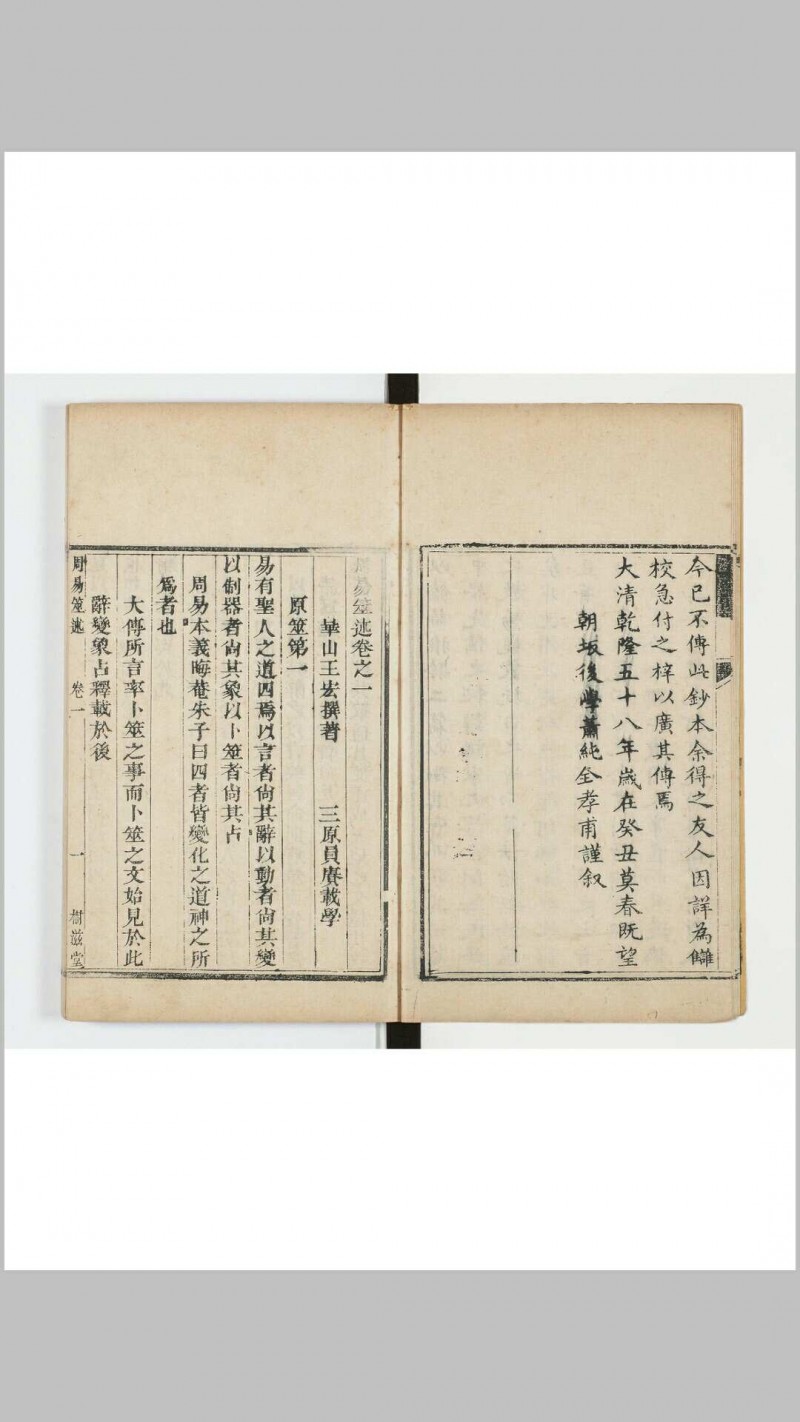 今已不傳此鈔本余得之友人因詳為讎
校急付之梓以廣其傳焉
大清乾隆五十八年歲在癸丑莫春既望
朝坂後學蕭純全孝甫謹叙
周易筮述卷之一
華山王宏撰著 三原員賡載學
原筮第一
易有聖人之道四焉以言者尙其辭以動者尙其變
以制器者尙其象以卜筮者尙其占
周易本義晦菴朱子曰四者皆變化之道神之所
爲者也
大傳所言率卜筮之事而卜筮之文始見於此
辭變象占釋載於後
周易筮述 卷一 一 樹滋堂